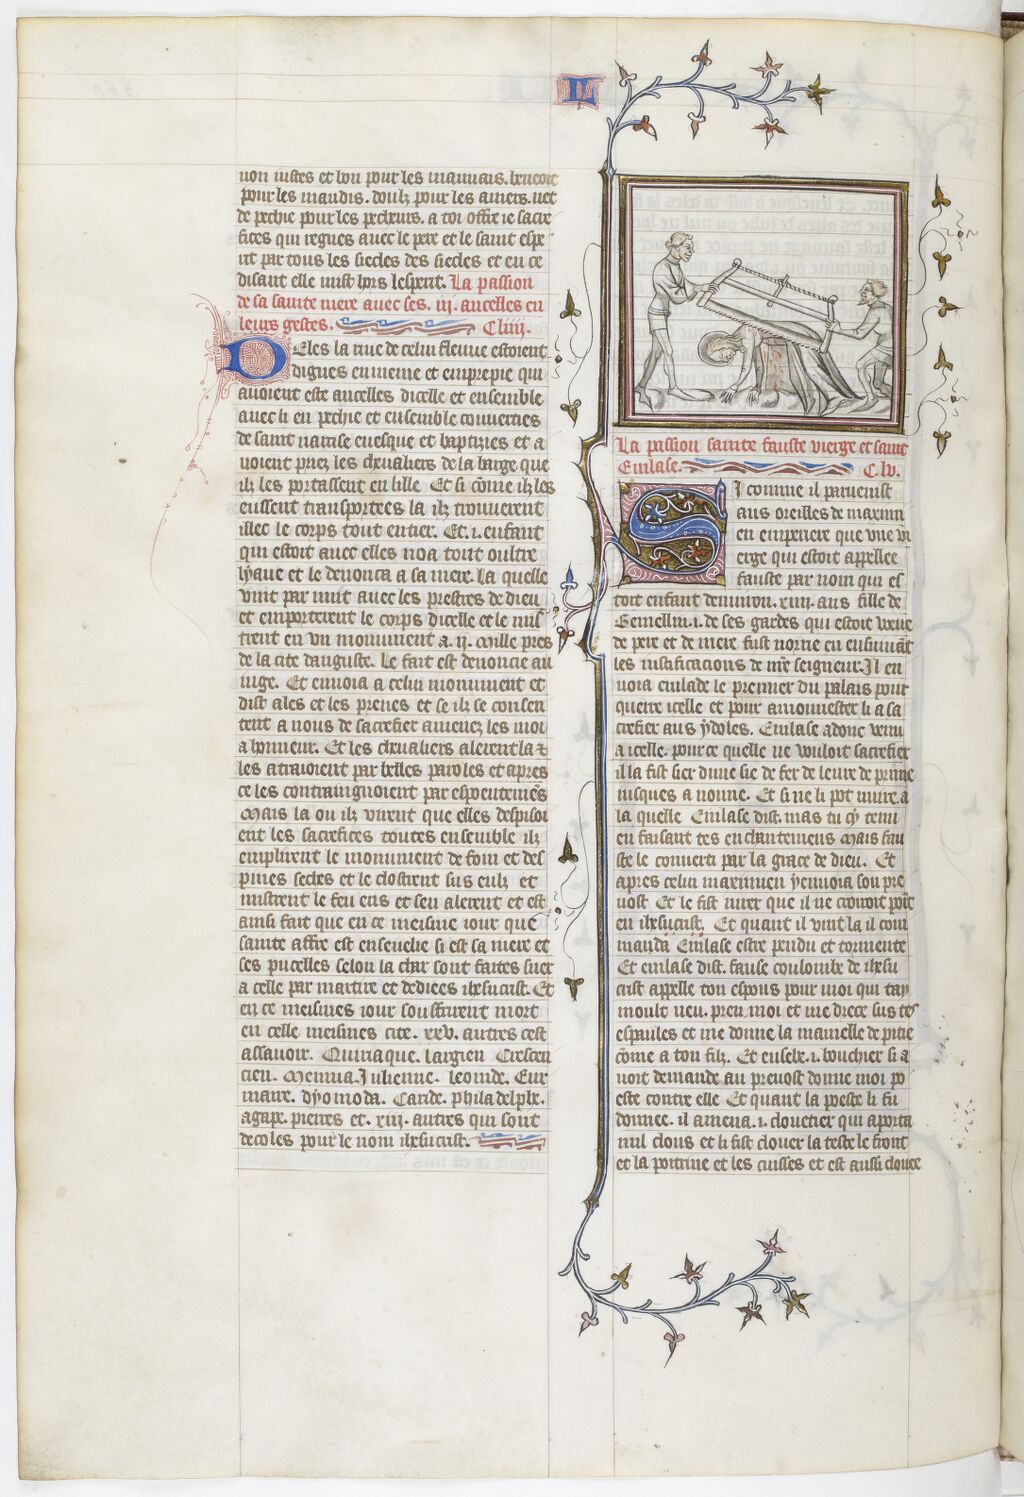 L
non iustes et bon pour les mauuais. benoit
pour les maudis. doulz pour les amers. net
de pechie pour les pecheurs. a toi offre ie sacre
fices qui regnes auec le pere et le saint espe
rit par tous les siecles des siecles et en ce
disant elle mist hors lesperit. La passion
de sa sainte mere auec ses .iij. ancelles en
leurs gestes. C liiij.
Deles la riue de celui fleuue estoient
dignes
auoient este ancelles dicelle et ensemble
auec li en pechie et ensemble conuerties
de saint narcise euesque et baptizies et a
uoient priez les cheualiers de la barge que
ilz les portassent en lille Et si come ilz les
eussent transportees la ilz trouuerent
illec le corps tout entier. Et .i. enfant
qui estoit auec elles noa tout oultre
lyaue et le denonca a sa mere. la quelle
vint par nuit auec les prestres de dieu
et emporterent le corps dicelle et le mis
trent en vn monument a .ij. mille pres
de la cite dauguste. Le fait est denoncie au
iuge. Et enuoia a celui monument et
dist ales et les prenes et se ilz se consen
tent a nous de sacrefier amenez les moi
a honneur. Et les cheualiers alerent la et
les atraioient par belles paroles et apres
ce les contraingnoient par espoentemens
Mais la ou ilz virent que elles despisoi
ent les sacrefices toutes ensemble ilz
emplirent le monument de foin et des
pines seches et le clostrent sus eulz et
mistrent le feu ens et sen alerent et est
ainsi fait que en ce meisme iour que
sainte affre est enseuelie si est sa mere et
ses pucelles selon la char sont faites suer
a celle par martire et dediees ihesucrist. Et
en ce meismes iour souffrirent mort
en celle meismes cite .xxv. autres cest
assauoir. Quiriaque. largien Crescen
cien. Memma. Julienne. leonide. Eur
maire. dyomoda. Caride. philadelphe.
agape. pierres et .xiij. autres qui sont
decoles pour le nom ihesucrist.
La passion sainte fauste vierge et saint
Euilase. C lv.
Si comme il paruenist
aus oreilles de maximi
en empereeur que vne vi
erge qui estoit appellee
fauste par nom qui es
toit enfant denuiron .xiiij. ans fille de
Gemellin .i. de ses gardes qui estoit veuue
de pere et de mere fust norrie en ensuiuant
les iustificacions de nostre seigneur. Il en
uoia euilade le premier du palais pour
querre icelle et pour amonnester li a sa
crefier aus ydoles. Euilase adonc vint
a icelle. pour ce quelle ne vouloit sacrefier
il la fist sier dune sie de fer de leure de prime
iusques a nonne. Et si ne li pot nuire. a
la quelle Euilase dist. mas tu cy tenu
en faisant tes enchantemens Mais fau
ste le conuerti par la grace de dieu. Et
apres celui maximien y enuoia son pre
uost. Et le fist iurer que il ne croiroit point
en ihesucrist. Et quant il vint la il com
manda Euilase estre pendu et tormente
Et euilase dist. fauste coulombe de ihesu
crist appelle ton espous pour moi qui tay
moult neu. pren moi et me drece sus tes
espaules et me donne la mamelle de pitie
come a ton filz. Et eusebe .i. bouchier si a
uoit demande au preuost donne moi po
este contre elle Et quant la poeste li fu
donnee. il amena .i. cloutier qui aporta
mil clous et li fist clouer la teste le front
et la poitrine et les cuisses et est aussi clouee